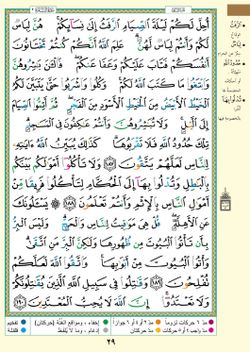 أُحِلَّ لَكُمْ لَيْلَةَ ٱلصِّيَامِ ٱلرَّفَثُ إِلَىٰ نِسَآئِكُمْ هُنَّ لِبَاسٌ
لَّكُمْ وَأَنتُمْ لِبَاسٌ لَّهُنَّ عَلِمَ ٱللَّهُ أَنَّكُمْ كُنتُمْ تَخْتَانُونَ
أَنفُسَكُمْ فَتَابَ عَلَيْكُمْ وَعَفَا عَنكُمْ فَٱلْـَٰٔنَ بَـٰشِرُوهُنَّ
وَٱبْتَغُوا۟ مَا كَتَبَ ٱللَّهُ لَكُمْ وَكُلُوا۟ وَٱشْرَبُوا۟ حَتَّىٰ يَتَبَيَّنَ لَكُمُ
ٱلْخَيْطُ ٱلْأَبْيَضُ مِنَ ٱلْخَيْطِ ٱلْأَسْوَدِ مِنَ ٱلْفَجْرِ ثُمَّ أَتِمُّوا۟ ٱلصِّيَامَ
إِلَى ٱلَّيْلِ وَلَا تُبَـٰشِرُوهُنَّ وَأَنتُمْ عَـٰكِفُونَ فِى ٱلْمَسَـٰجِدِ
تِلْكَ حُدُودُ ٱللَّهِ فَلَا تَقْرَبُوهَا كَذَٰلِكَ يُبَيِّنُ ٱللَّهُ ءَايَـٰتِهِۦ
لِلنَّاسِ لَعَلَّهُمْ يَتَّقُونَ ١٨٧ وَلَا تَأْكُلُوٓا۟ أَمْوَٰلَكُم بَيْنَكُم
بِٱلْبَـٰطِلِ وَتُدْلُوا۟ بِهَآ إِلَى ٱلْحُكَّامِ لِتَأْكُلُوا۟ فَرِيقًا مِّنْ
أَمْوَٰلِ ٱلنَّاسِ بِٱلْإِثْمِ وَأَنتُمْ تَعْلَمُونَ ١٨٨ يَسْـَٔلُونَكَ
عَنِ ٱلْأَهِلَّةِ قُلْ هِىَ مَوَٰقِيتُ لِلنَّاسِ وَٱلْحَجِّ وَلَيْسَ ٱلْبِرُّ
بِأَن تَأْتُوا۟ ٱلْبُيُوتَ مِن ظُهُورِهَا وَلَـٰكِنَّ ٱلْبِرَّ مَنِ ٱتَّقَىٰ
وَأْتُوا۟ ٱلْبُيُوتَ مِنْ أَبْوَٰبِهَا وَٱتَّقُوا۟ ٱللَّهَ لَعَلَّكُمْ
تُفْلِحُونَ ١٨٩ وَقَـٰتِلُوا۟ فِى سَبِيلِ ٱللَّهِ ٱلَّذِينَ يُقَـٰتِلُونَكُمْ
وَلَا تَعْتَدُوٓا۟ إِنَّ ٱللَّهَ لَا يُحِبُّ ٱلْمُعْتَدِينَ ١٩٠
٢٩